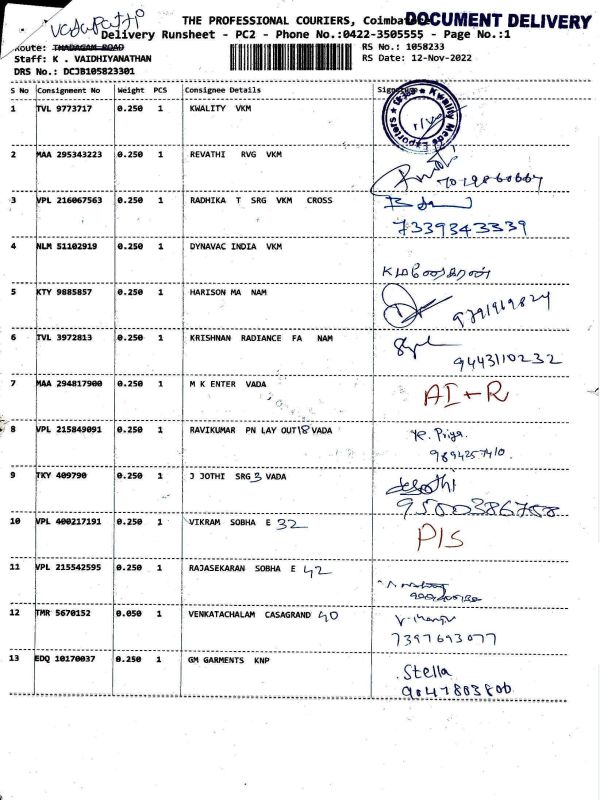 vadapathi
THE PROFESSIONAL COURIERS, Coimbat
DOCUMENT DELIVERY
Delivery Runsheet - PC2 - Phone No.:0422-3505555 - Page No.:1
Route: THADAGAM ROAD
RS No.: 1058233
Staff: K . VAIDHIYANATHAN
RS Date: 12-Nov-2022
DRS No.: DCJB105823301
S No Consignment No Weight PCS Consignee Details Signature
1 TVL 9773717 0.250 1 KWALITY VKM
Kwality Meds Exporters
2 MAA 295343223 0.250 1 REVATHI RVG VKM
3 VPL 216067563 0.250 1 RADHIKA T SRG VKM CROSS
7339343339
4 NLM 51102919 0.250 1 DYNAVAC INDIA VKM
5 KTY 9885857 0.250 1 HARISON MA NAM
9791969824
6 TVL 3972813 0.250 1 KRISHNAN RADIANCE FA NAM
9443110232
7 MAA 294817900 0.250 1 M K ENTER VADA AI+R
8 VPL 215849091 0.250 1 RAVIKUMAR PN LAY OUT 18 VADA Priya.
9894257410.
9 TKY 409790 0.250 1 J JOTHI SRG 3 VADA
9500386758
10 VPL 400217191 0.250 1 VIKRAM SOBHA E 32 P/S
11 VPL 215542595 0.250 1 RAJASEKARAN SOBHA E 42
12 TMR 5670152 0.050 1 VENKATACHALAM CASAGRAND 40
7397693077
13 EDQ 10170037 0.250 1 GM GARMENTS KNP Stella
9047803800